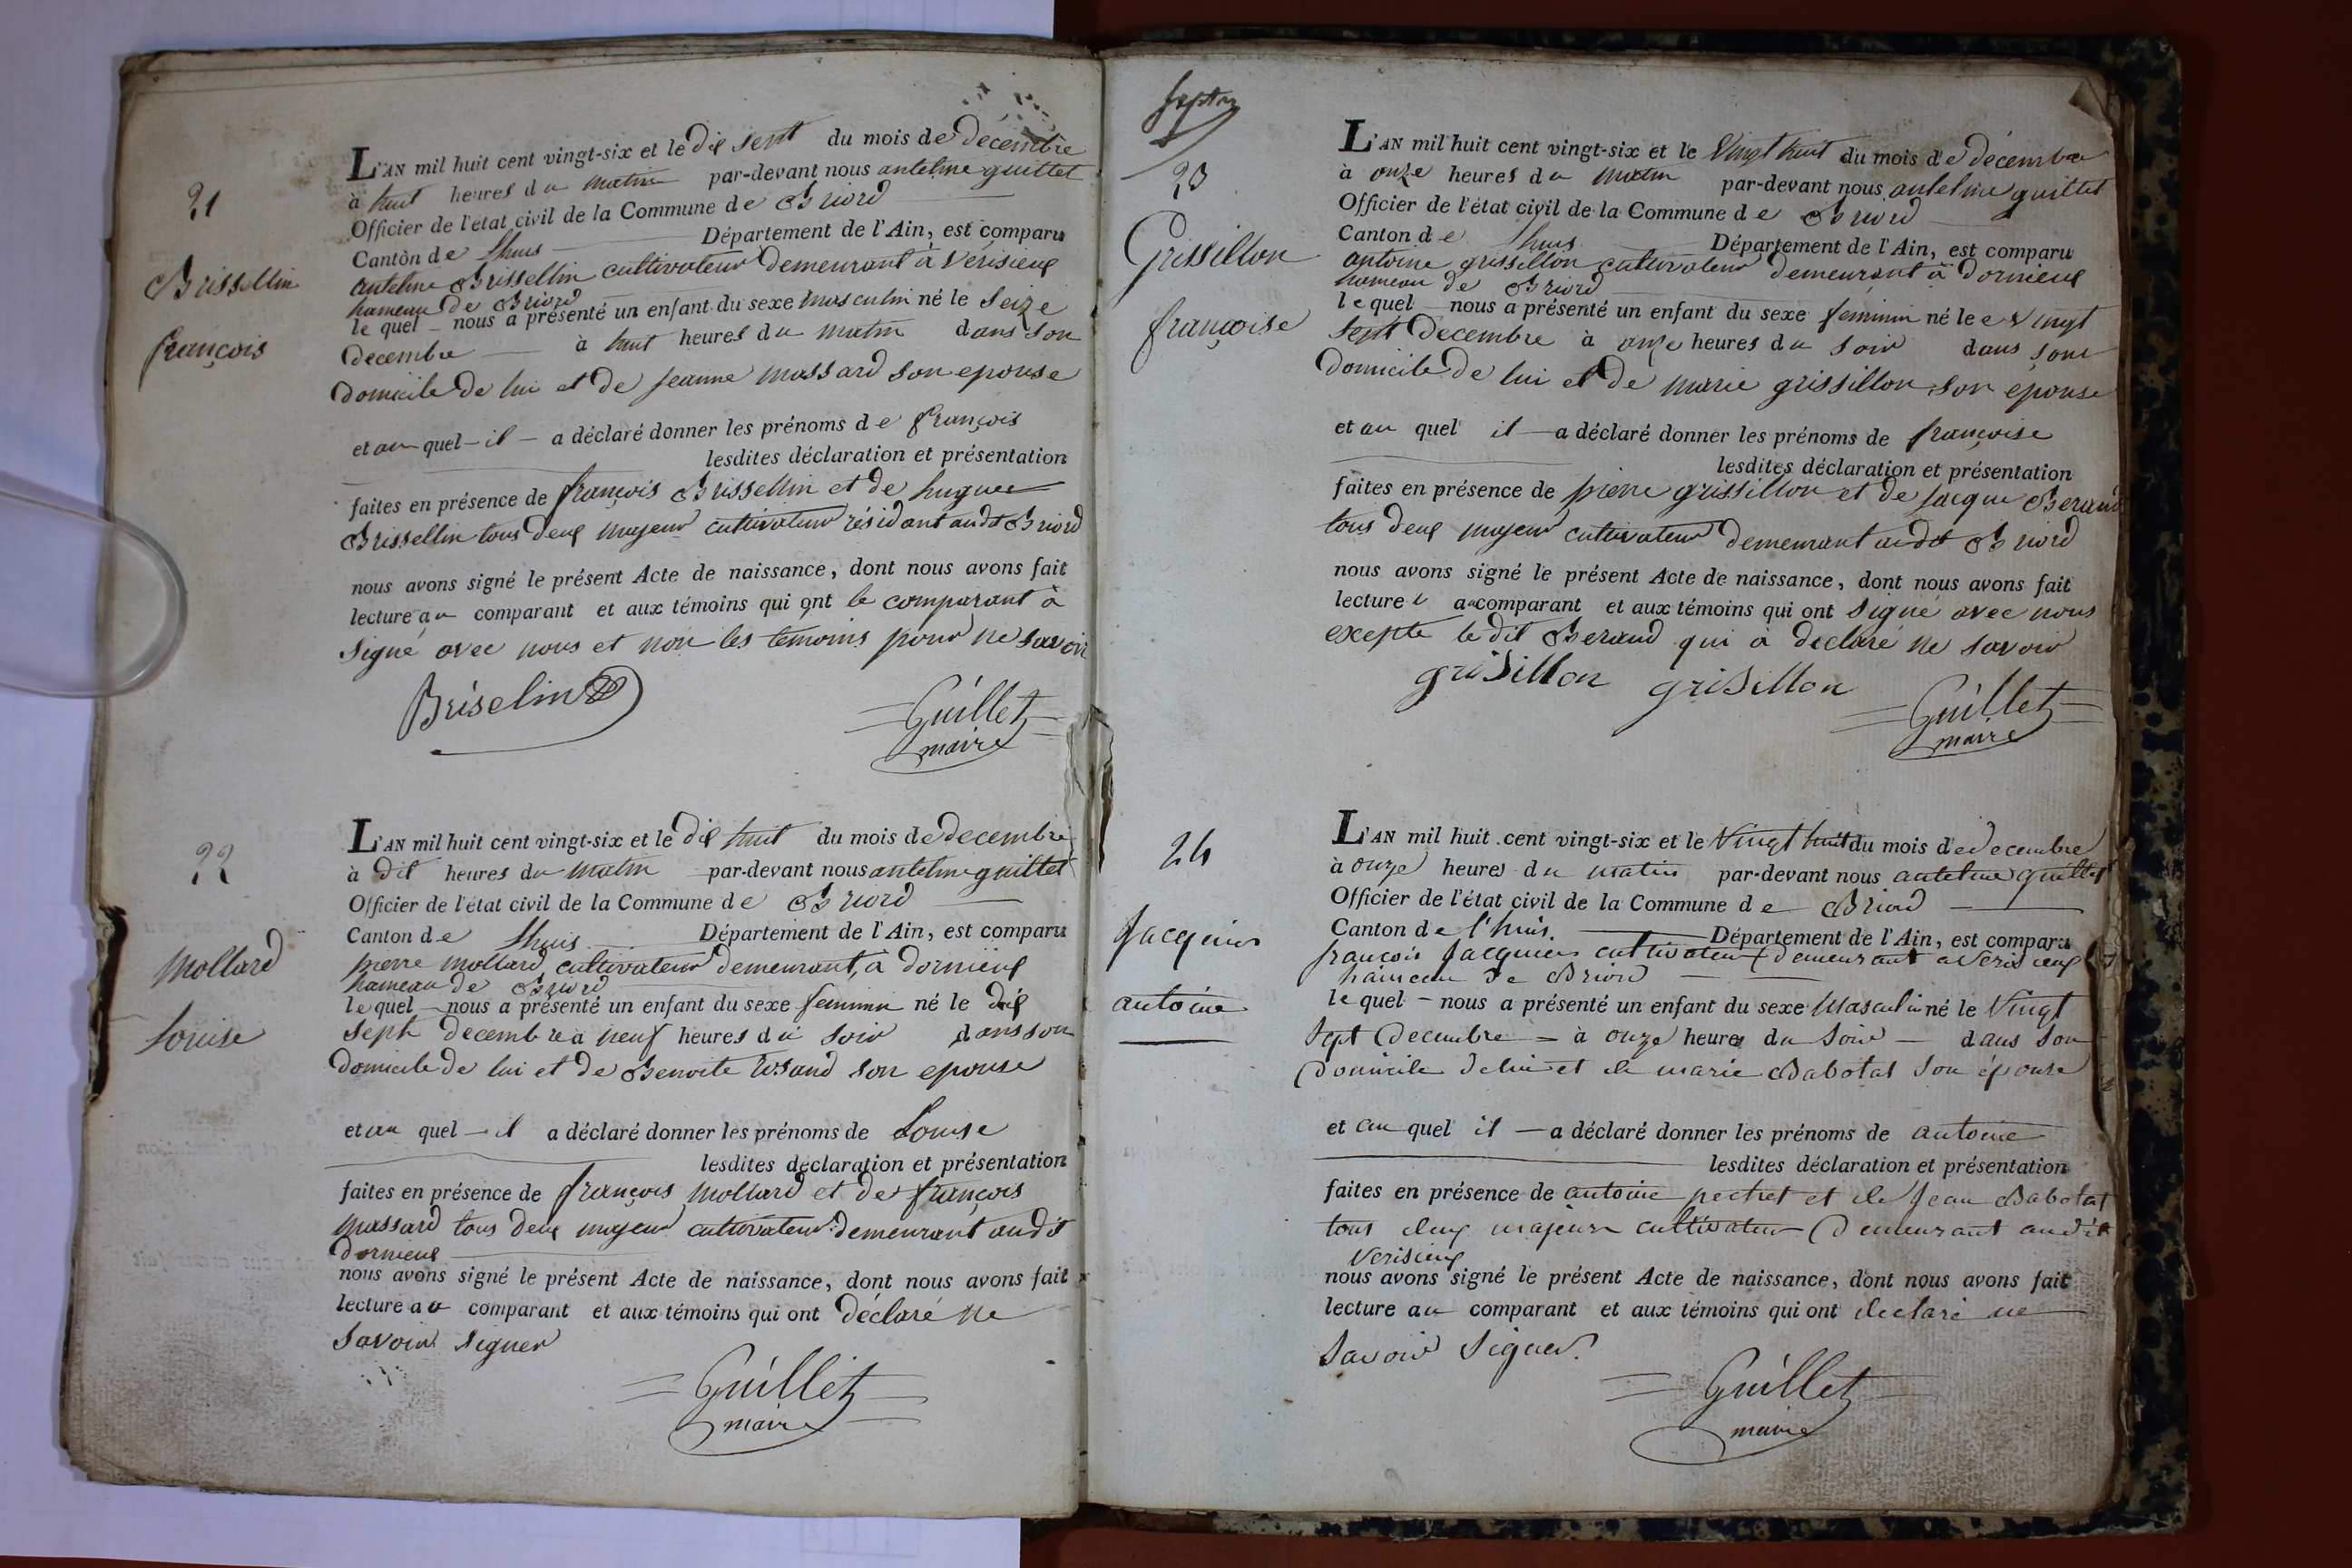 21
Brissellin
françois
L'AN mil huit cent vingt-six et le dix sept du mois de décembre
à huit heures du matin par-devant nous antelme guillet
Officier de l'état civil de la Commune de Briord
Canton de Lhuis Département de l'Ain, est comparu
antelme Brissellin cultivateur demeurant à Verisieux
hameau de Briord
lequel nous a présenté un enfant du sexe masculin né le seize
decembre à huit heures du matin dans son
domicile de lui et de jeanne massard son epouse
et au quel il a déclaré donner les prénoms de françois
lesdites déclaration et présentation
faites en présence de françois Brissellin et de hugue
Brissellin tous deux majeur cultivateur résidant audit Briord
nous avons signé le présent Acte de naissance, dont nous avons fait
lecture au comparant et aux témoins qui ont le comparant à
signé avec nous et non les temoins pour ne savoir
Briselin
Guillet
maire
22
Mollard
Louise
L'AN mil huit cent vingt-six et le dix huit du mois de decembre
à dix heures du matin par-devant nous antelme guillet
Officier de l'état civil de la Commune de Briord
Canton de Lhuis Département de l'Ain, est comparu
pierre mollard cultivateur demeurant, a dornieux
hameau de Briord
lequel nous a présenté un enfant du sexe feminin né le dix
sept decembre à neuf heures du soir dans son
domicile de lui et de Benoite son epouse
et au quel il a déclaré donner les prénoms de Louise
lesdites déclaration et présentation
faites en présence de françois mollard et de françois
massard tous deux majeur cultivateur demeurant audit
dornieux
nous avons signé le présent Acte de naissance, dont nous avons fait
lecture au comparant et aux témoins qui ont déclaré ne
savoir signer
Guillet
maire
23
Grissillon
françoise
L'AN mil huit cent vingt-six et le Vingt huit du mois de décembre
à onze heures du matin par-devant nous antelme guillet
Officier de l'état civil de la Commune de Briord
Canton de Lhuis Département de l'Ain, est comparu
antoine grissillon cultivateur demeurant à dornieux
hameau de Briord
lequel nous a présenté un enfant du sexe feminin né lee vingt
sept decembre à onze heures du soir dans son
domicile de lui et de marie grissillon son épouse
et au quel il a déclaré donner les prénoms de françoise
lesdites déclaration et présentation
faites en présence de pierre grissillon et de jacque Beraud
tous deux majeur cultivateur demeurant audit Briord
nous avons signé le présent Acte de naissance, dont nous avons fait
lecture au comparant et aux témoins qui ont signé avec nous
excepte le dit Beraud qui à declaré ne savoir
griSillon griSillon
Guillet
maire
24
Jacquier
antoine
L'AN mil huit cent vingt-six et le Vingt huit du mois de decembre
à onze heures du matin par-devant nous antelme guillet
Officier de l'état civil de la Commune de Briord
Canton de l'huis. Département de l'Ain, est comparu
françois Jacquier cultivateur demeurant a Verisieux
hameau de Briord
lequel nous a présenté un enfant du sexe Masculin né le Vingt
Sept Decembre à onze heures du Soir dans Son
Domicile de lui et de marie Babolat Son épouse
et au quel il a déclaré donner les prénoms de antoine
lesdites déclaration et présentation
faites en présence de antoine et de Jean Babolat
tous deux majeurs cultivateur Demeurant audit
Verisieux
nous avons signé le présent Acte de naissance, dont nous avons fait
lecture au comparant et aux témoins qui ont declaré ne
Savoir Signer.
Guillet
maire